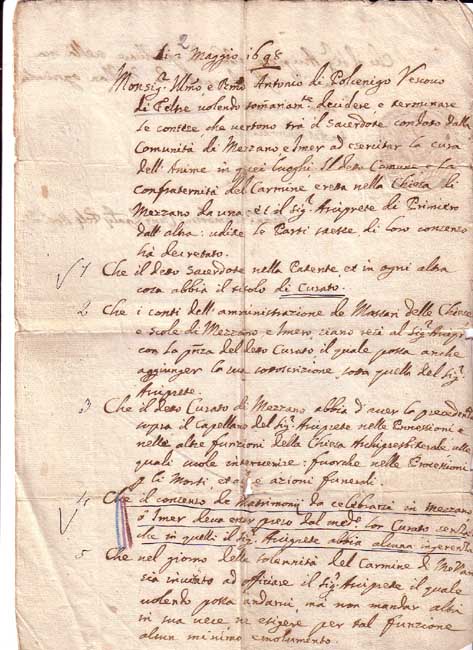 li 2 Maggio 1698
Monsig.r Illmo e Rmo Antonio di Polcenigo Vescovo
di Feltre volendo somariam.te decidere e terminare
le contese che vertono trà il Sacerdote condoto dalla
Comunità di Mezzano e Imer ad esercitar la cura
dell'Anime in quei luoghi Il detto Comune e La
Confraternità del Carmine eretta nella Chiesa di
Mezzano da una et il sig.r Arciprete di Primiero
dall'altra: udite le Parti stesse di loro consenso
hà decretato.
1 Che il detto Sacerdote nella Patente et in ogni altra
cosa abbia il titolo di Curato.
2 Che i conti dell'amministrazione de Massari delle Chiese
e scole di Mezzano e Imer, siano resi al Sig.r Arcip.
con la pñza del detto Curato il quale possa anche
aggiunger la sua sottoscrizione sotto quella del sig.r
Arciprete.
3 Che il detto Curato di Mezzano abbia d'aver la precedenza
sopra il Capellano del sig.r Arciprete nelle Processioni e
nelle altre funzioni della Chiesa Archipresbiterale alle
quali suole intervenire: fuorche nelle Processioni
p li Morti et azioni funerali.
4 Che il consenso de Matrimonij da celebrarsi in Mezzano
ò Imer deva esser preso dal med.o lor Curato senza
che in quelli il sig.r Arciprete abbia alcuna ingerenza
5 Che nel giorno della solennità del Carmine di Mezzano
sia invitato ad officiare il sig.r Arciprete il quale
volendo possa andarvi, ma non mandar altri
in sua vece ne esigere per tal funzione
alcun minimo emolumento.